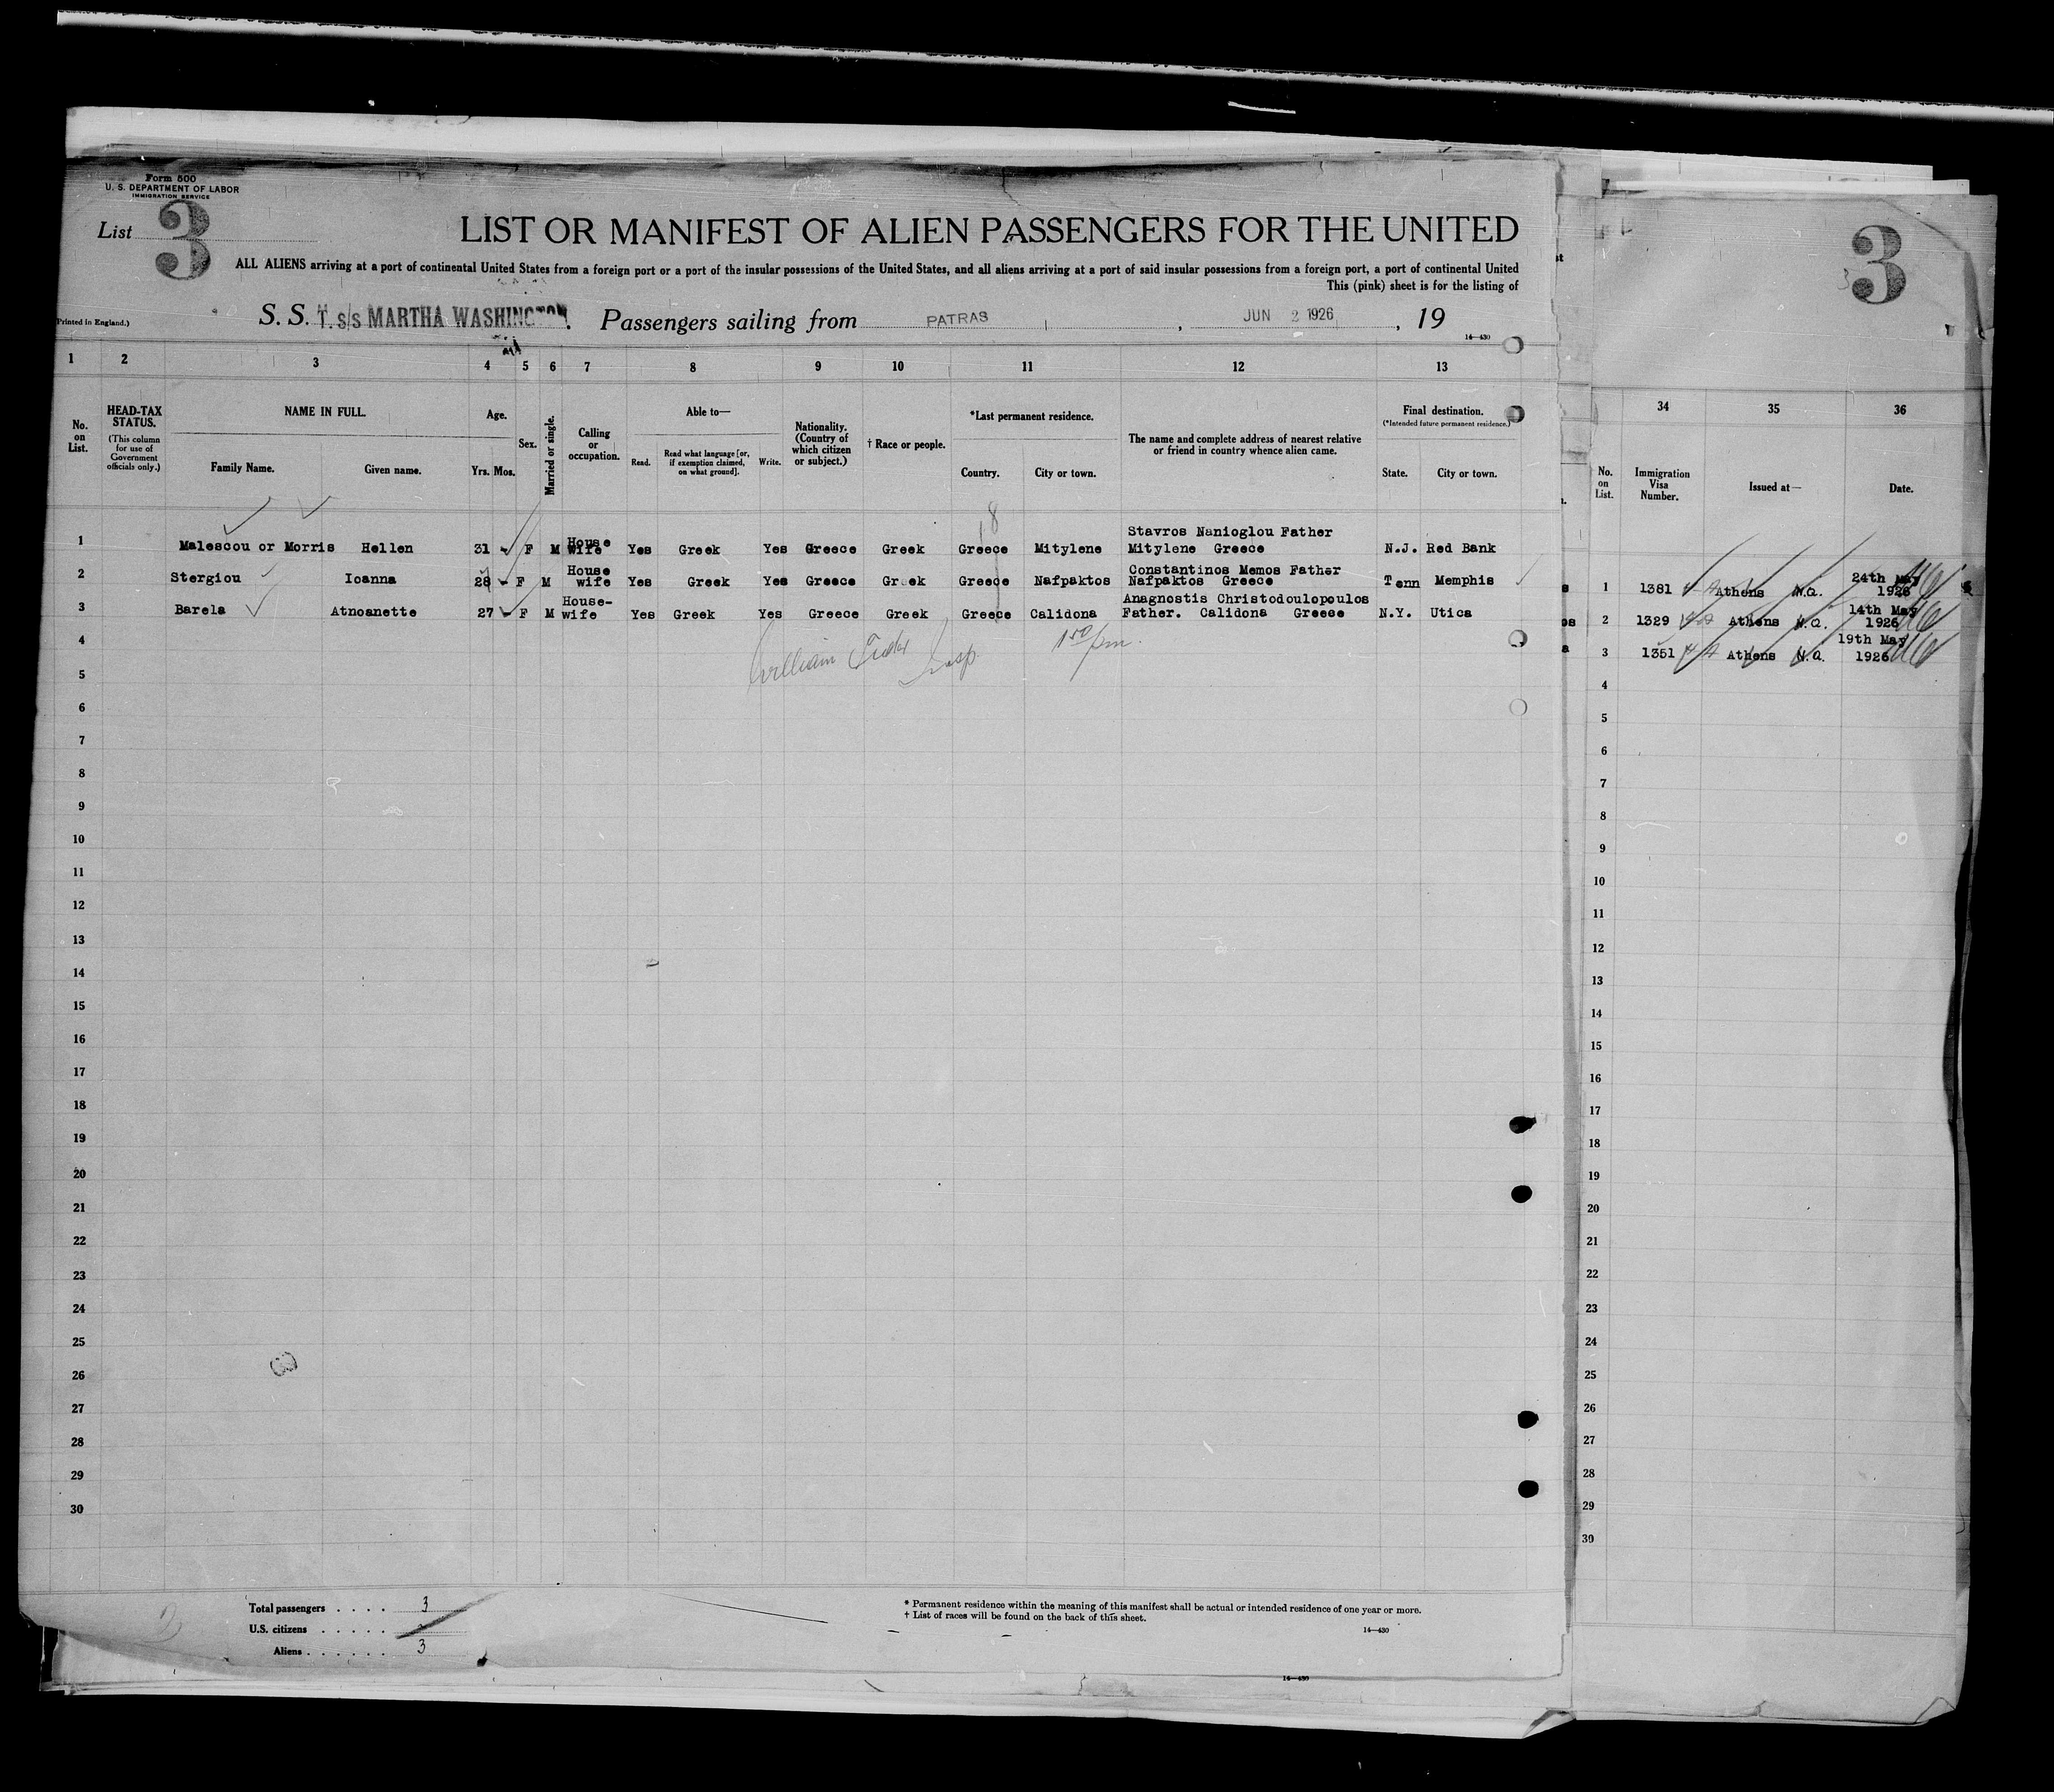 Form 500
U. S. DEPARTMENT OF LABOR
IMMIGRATION SERVICE
List 3
LIST OR MANIFEST OF ALIEN PASSENGERS FOR THE UNITED
ALL ALIENS arriving at a port of continental United States from a foreign port or a port of the insular possessions of the United States, and all aliens arriving at a port of said insular possessions from a foreign port, a port of continental United
This (pink) sheet is for the listing of
Printed in England.)
S. S. T. s/s MARTHA WASHINGTON. Passengers sailing from PATRAS, JUN 2 1926, 19
14—430
1 2 3 4 5 6 7 8 9 10 11 12 13
No. on List.
HEAD-TAX STATUS.
(This column for use of Government officials only.)
NAME IN FULL.
Family Name. Given name.
Age.
Yrs. Mos.
Sex.
Married or single.
Calling or occupation.
Able to—
Read. Read what language [or, if exemption claimed, on what ground]. Write.
Nationality. (Country of which citizen or subject.)
† Race or people.
*Last permanent residence.
Country. City or town.
The name and complete address of nearest relative or friend in country whence alien came.
Final destination.
(*Intended future permanent residence.)
State. City or town.
18
1 Malescou or Morris Hellen 31 - F M House wife Yes Greek Yes Greece Greek Greece Mitylene Stavros Nanioglou Father Mitylene Greece N.J. Red Bank
2 Stergiou Ioanna 28 - F M House wife Yes Greek Yes Greece Greek Greece Nafpaktos Constantinos Memos Father Nafpaktos Greece Tenn Memphis
3 Barela Atnoanette 27 - F M House-wife Yes Greek Yes Greece Greek Greece Calidona Anagnostis Christodoulopoulos Father. Calidona Greese N.Y. Utica
William Insp. 1 50 pm.
4
5
6
7
8
9
10
11
12
13
14
15
16
17
18
19
20
21
22
23
24
25
26
27
28
29
30
Total passengers . . . . 3
U.S. citizens . . . . .
Aliens . . . . . . 3
* Permanent residence within the meaning of this manifest shall be actual or intended residence of one year or more.
† List of races will be found on the back of this sheet.
14—430
14—430
3
34 35 36
No. on List.
Immigration Visa Number.
Issued at—
Date.
1 1381 Athens N.Q. 24th May 1926
2 1329 Athens N.Q. 14th May 1926
3 1351 Athens N.Q. 19th May 1926
4
5
6
7
8
9
10
11
12
13
14
15
16
17
18
19
20
21
22
23
24
25
26
27
28
29
30